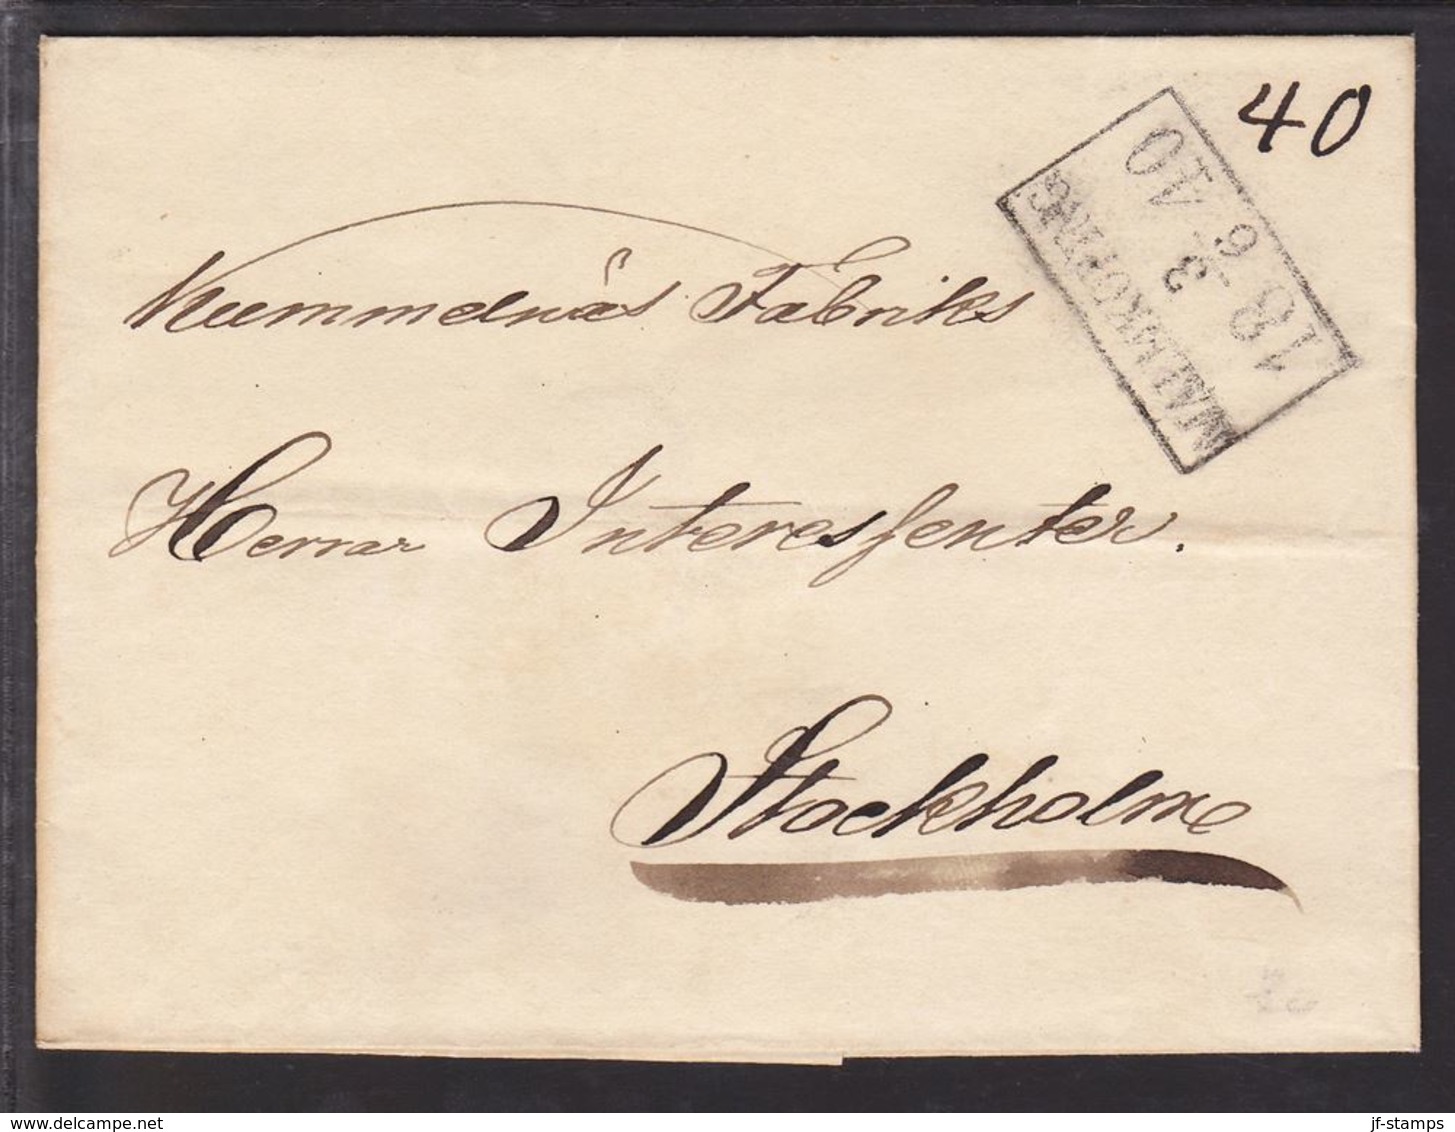 40
MALMKÖPING
18 6/3 40
Kummelnäs Fabriks
Herrar Interessenter.
Stockholm
jf-stamps